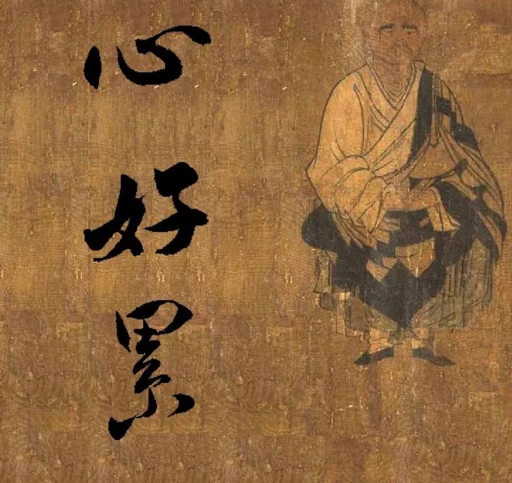 心好累